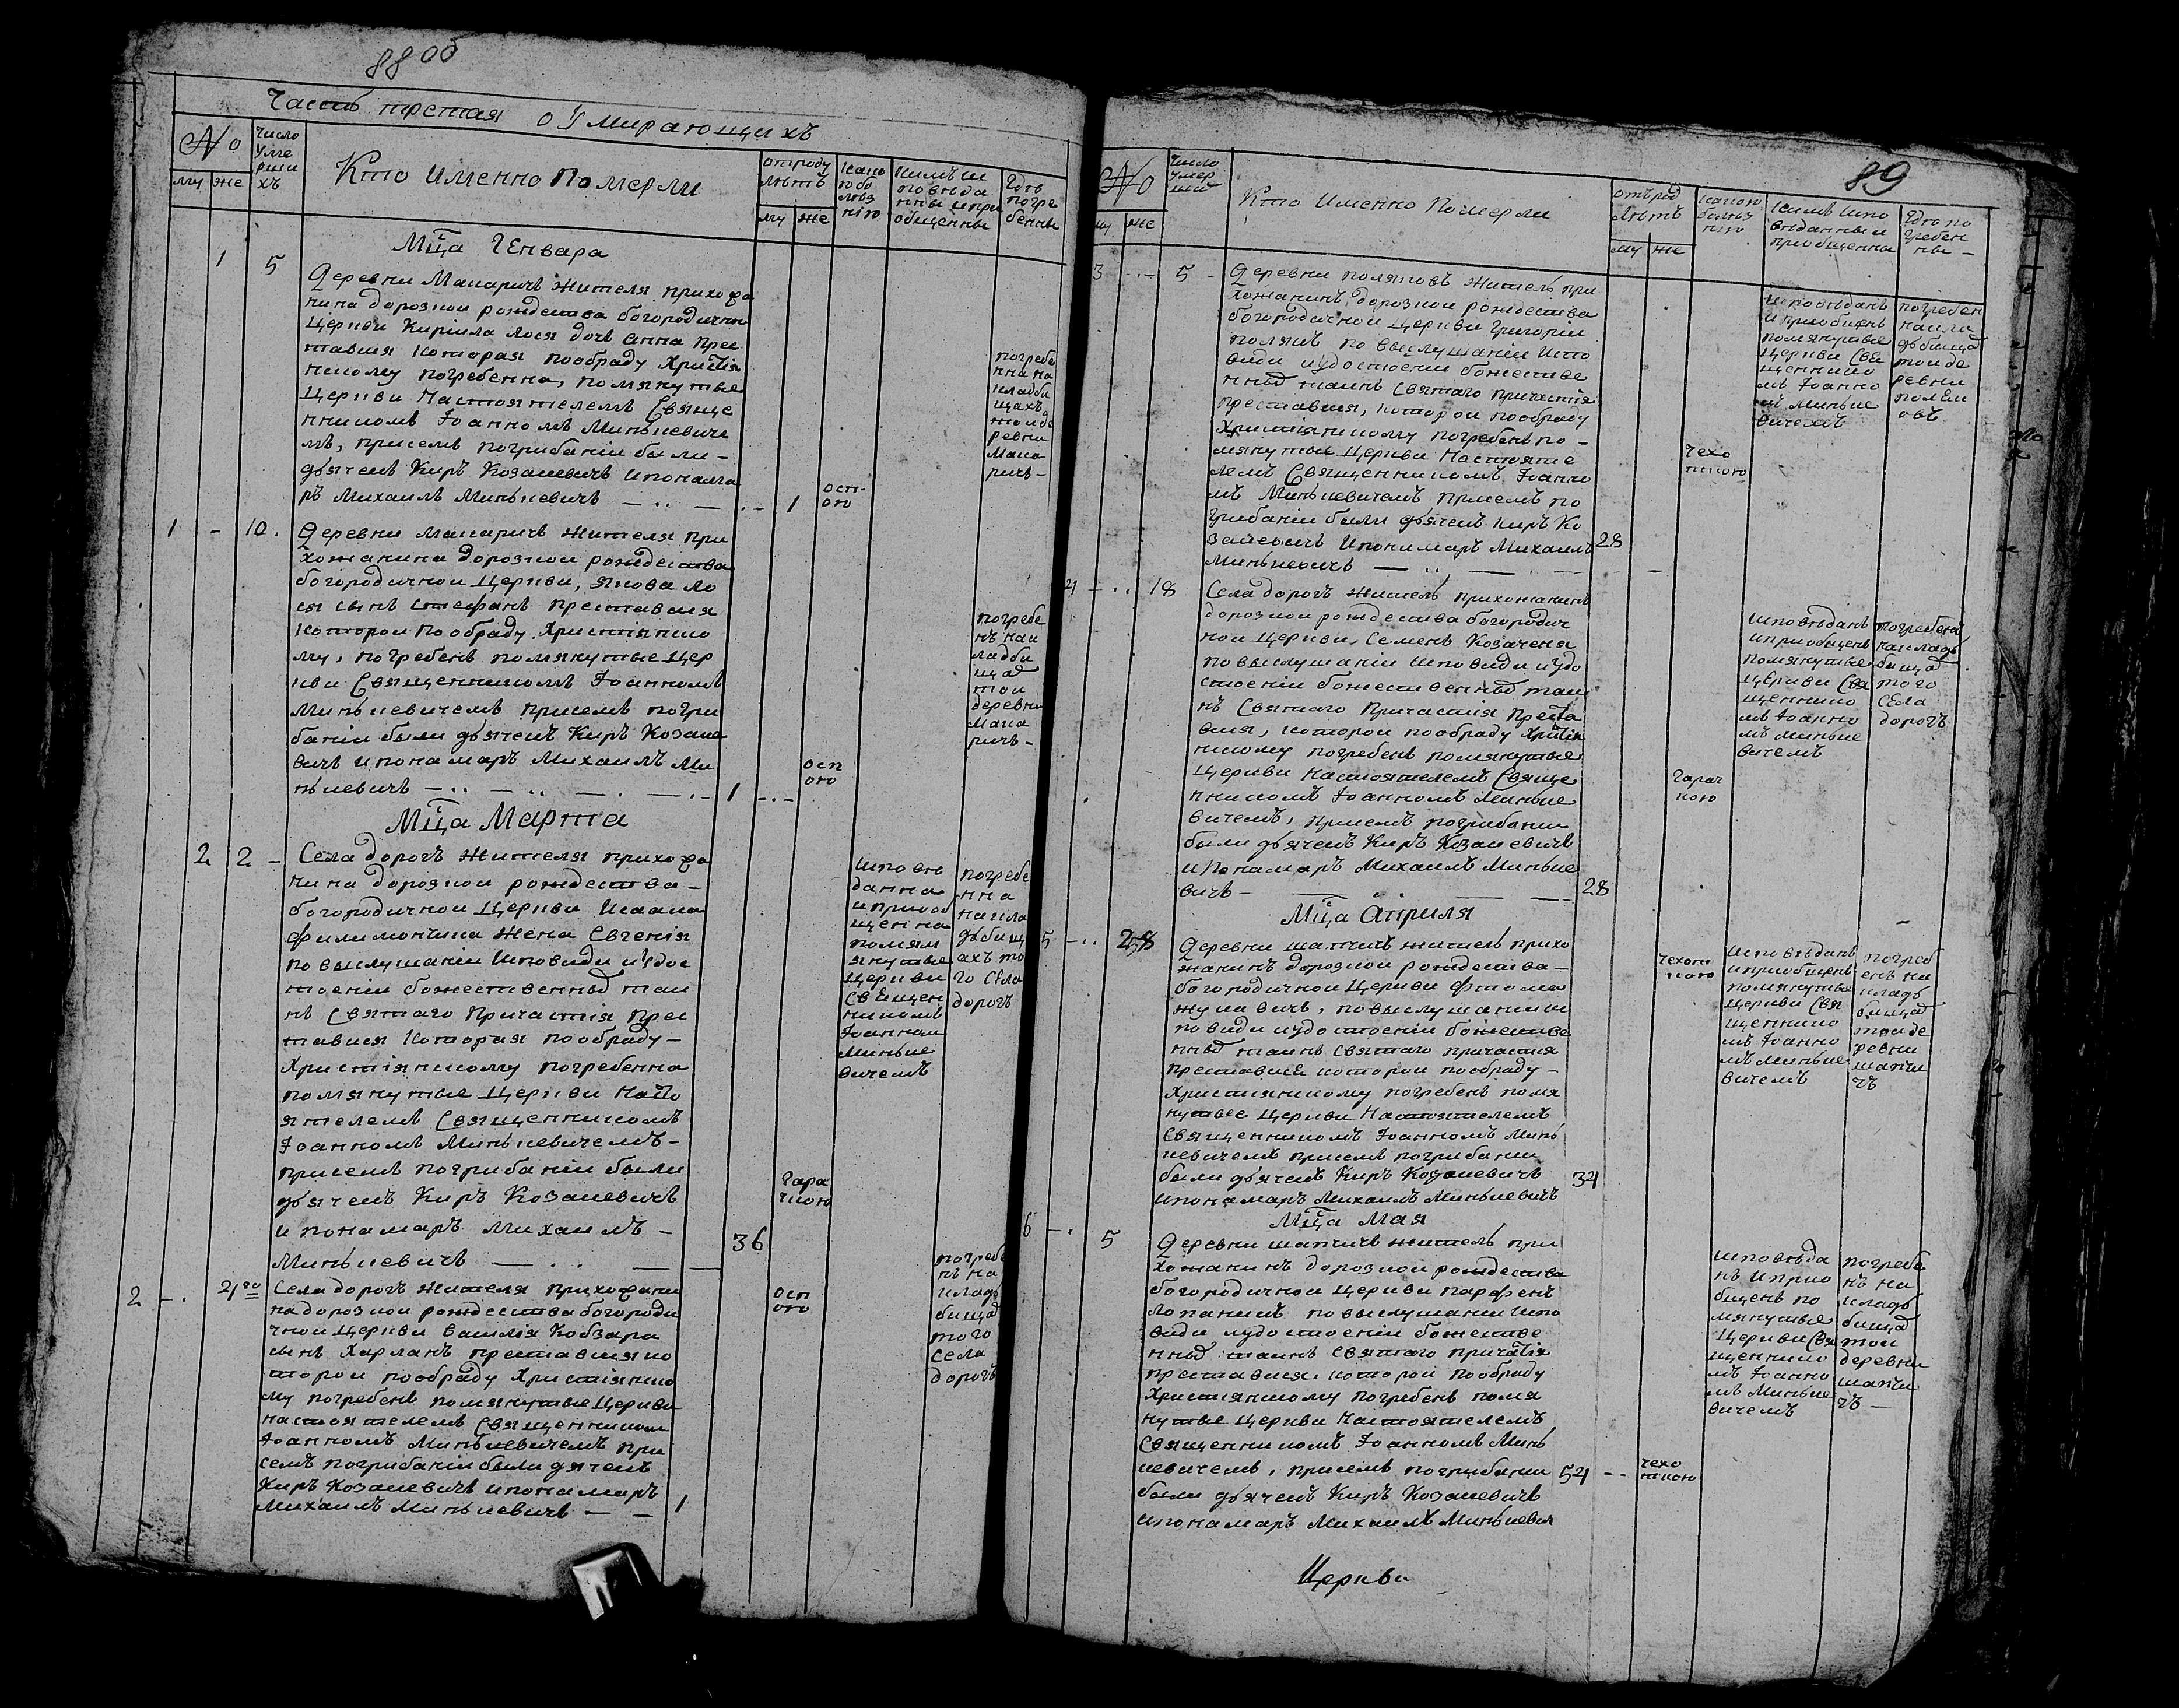 88 об
Часть третая о Умирающихъ
№
му же
Число
Умерши
хъ
Кто именно померли
отроду
лѣтъ
му же
Какою
болѣз
нію
Кимъ и
повѣда
нны и при
общенны
Гдѣ
погре
бенны
Мца Генвара
1 5
Деревни Макаричъ жителя прихожа
нина дорозкои рождества богородичнои
Церкви Кирила Лося дочъ Анна прес
тавися которая пообраду Христія
нскому погребенна, помянутые
Церкви Настоятелемъ Свяще
нникомъ Іоанномъ Минкевиче
мъ, присемъ погрибаніи были -
дьячекъ Киръ Козакевичъ и понама
ръ Михаилъ Минькевичъ
1
осп
ою
погребе
нна на
кладби
щахъ
тои де
ревни
Мака
ричъ -
1 - 10.
Деревни Макаричъ жителя при
хожанина дорозкои рождества
богородичнои Церкви, Якова Ло
ся сынъ Стефанъ преставися
которои пообраду Христіянско
му, погребенъ помянутые Цер
кви Священникомъ Іоанномъ
Минькевичемъ присемъ погри
баніи были дьячекъ Киръ Козаке
вичъ и понамаръ Михаилъ Ми
нькевичъ
1
осп
ою
погребе
нъ на к
ладби
щах
тои
деревни
Мака
ричъ -
Мца Марта
2 2 -
Села дорогъ жителя прихожа
нина дорозкои рождества -
богородичнои Церкви Исаака
Филимончика жена Евгенія
по выслушаніи исповиди и удос
тоеніи божественных таи
нъ Святаго Причастія прес
тавися которая пообраду -
Христіянскому погребенна
помянутые Церкви Насто
ятелемъ Священникомъ
Іоанномъ Минькевичемъ -
присемъ погрибаніи были
дьячекъ Киръ Козакевичъ
и понамаръ Михаилъ -
Минькевичъ
36
Гаря
чкою
исповѣ
данна
и приоб
щенна
помям
янутые
Церкви
Священ
никомъ
Іоанном
Минке
вичемъ
погребе
нна
на кла
дьбищ
ахъ то
го Села
дорогъ
2 -
Села дорогъ жителя прихожани
на дорозкои рождества богороди
чнои Церкви Василія Кобзара
сынъ Харланъ преставися ко
торои пообраду Христіянско
му погребенъ помянутые Церкви
настоятелемъ Священником
Іоанномъ Минькевичемъ при
семъ погрибаніи были дячекъ
Киръ Козакевичъ и понамаръ
Михаилъ Минькевичъ - -
1
осп
ою
погребе
нъ на
кладь
бищах
того
села
дорогъ
89
№
му же
число
умер
ших
Кто именно Померли
отърод
лѣтъ
му же
какои
болѣз
нію
кимъ испо
вѣданны и
приобщенны
Гдѣ по
гребен
ны -
3 - 5 -
Деревни поляковъ житель при
хожанинъ дорозкои рождества
богородичнои Церкви Григоріи
полякъ по выслушаніи испо
види и удостоеніи божестве
нных таинъ Святаго причастія
преставися, которои пообраду
Христіянскому погребенъ по -
мянутые Церкви Настояте
лемъ Священникомъ Іоанно
мъ Минькевичемъ присемъ по
грибаніи были дьячекъ Киръ Ко
закевичъ и понимаръ Михаилъ
Минькевичъ
28
Чехо
ткою
исповѣданъ
и приобщенъ
помянутые
Церкви Свя
щеннико
мъ Іоанно
мъ Минке
вичемъ
погребен
на кла
дьбищах
тои де
ревни
поляк
овъ
4 - 18
Села дорогъ житель прихожанинъ
дорозкои рождества богородич
нои Церкви, Семенъ Козаченя
по выслушаніи исповиди и удо
стоеніи божественных таи
нъ Святаго Причастія преста
вися, которои пообраду Христія
нскому погребенъ помянутые
Церкви Настоятелемъ Свяще
нникомъ Іоанномъ Минке
вичемъ, присемъ погрибании
были дьячекъ Киръ Козакевичъ
и Понамаръ Михаилъ Минке
вичъ -
28
Гаряч
кою
исповѣданъ
и приобщенъ
помянутые
Церкви Свя
щеннико
мъ Іоанно
мъ Минке
вичемъ
погребенъ
на кладь
бищах
того
Села
дорогъ
Мца Априля
5 - 28
Деревни шапчичъ житель прихо
жанинъ дорозкои рождества -
богородичнои Церкви Фтома
Жукавичъ, по выслушании ис
повиди и удостоеніи божестве
нных таинъ Святаго причастия
преставися которои пообраду -
Християнскому погребенъ помя
нутые Церкви Настоятелемъ
Священникомъ Іоанномъ Минь
кевичемъ присемъ погрибании
были дьячекъ Киръ Козакевичъ
и понамаръ Михаилъ Минькевичъ
34
Чехот
кою
исповѣданъ
и приобщенъ
помянутые
Церкви Свя
щеннико
мъ Іоанно
мъ Минке
вичемъ
погреб
енъ на
кладь
бищах
тои де
ревни
шапчи
чъ
Мца Мая
6 - 5
Деревни шапчичъ житель при
хожанинъ дорозкои рождества
богородичнои Церкви Парфенъ
Лопаникъ по выслушании испо
види и удостоеніи божестве
нных таинъ Святаго причастія
преставися, которои пообраду
Християнскому погребенъ помя
нутые Церкви Настоятелемъ
Священникомъ Іоанномъ Минь
кевичемъ, присемъ погрибании
были дьячекъ Киръ Козакевичъ
и понамаръ Михаилъ Минькевич
54
чехо
ткою
исповѣда
нъ и прио
бщенъ по
мянутые
Церкви Свя
щеннико
мъ Іоанно
мъ Минке
вичемъ
погребе
нъ на
кладь
бищах
тои
деревни
шапчи
чъ -
Церкви